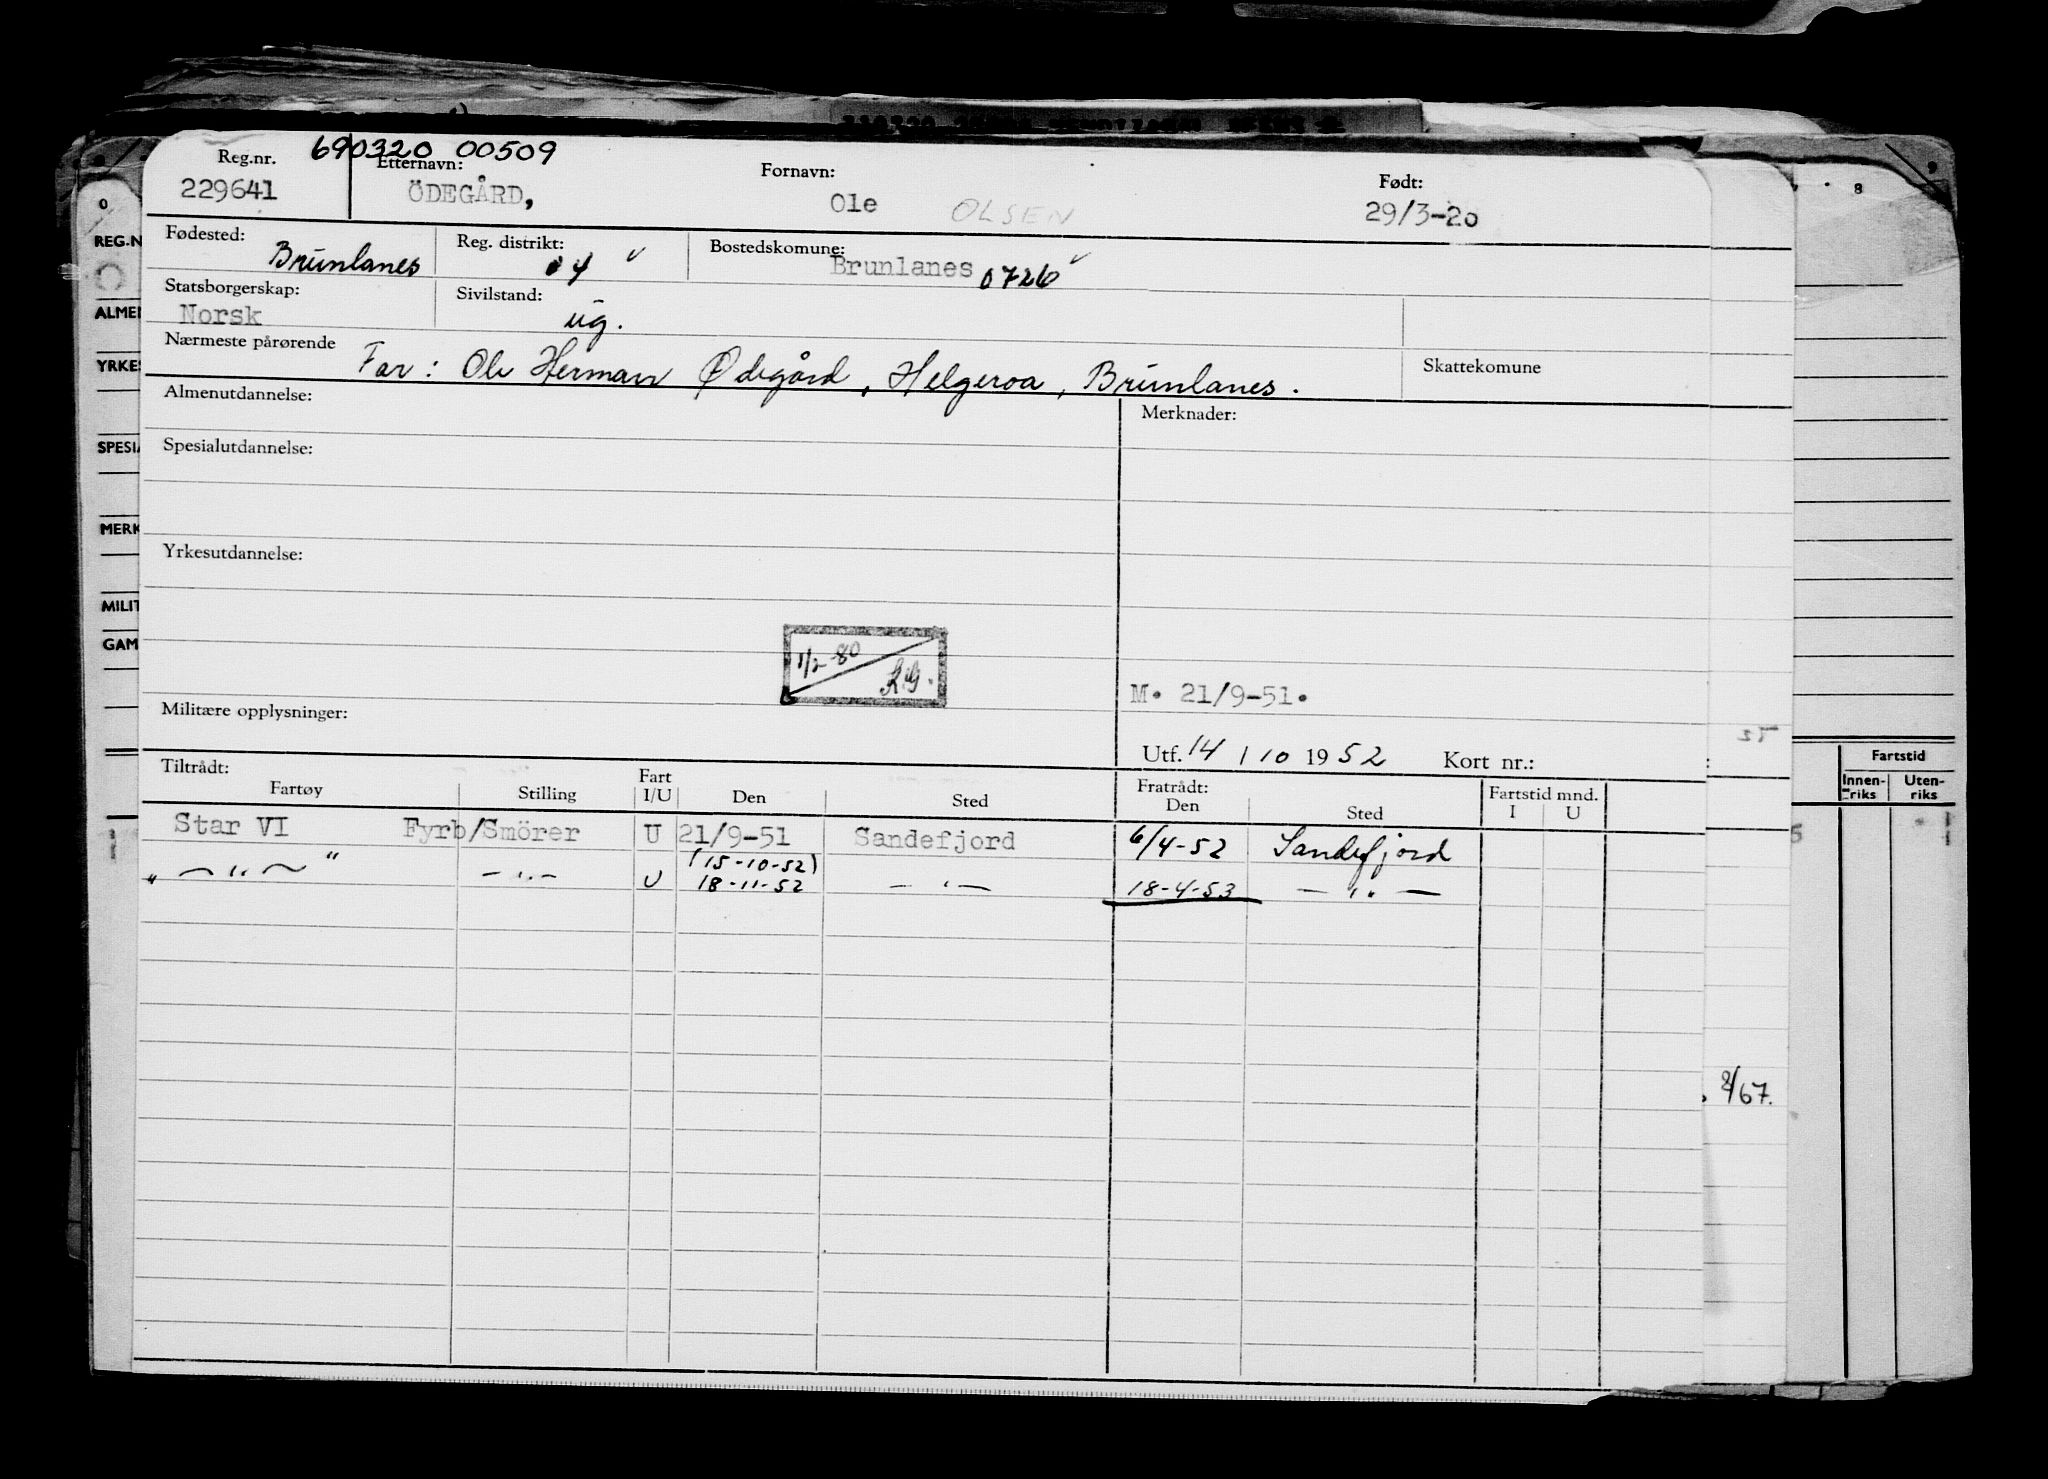 690320 00509
Reg.nr. Etternavn: Fornavn: Født:
229641 ÖDEGÅRD, Ole OLSEN 29/3-20
Fødested: Reg. distrikt: Bostedskomune:
Brunlanes 04 Brunlanes 0726
Statsborgerskap: Sivilstand:
Norsk ug.
Nærmeste pårørende Skattekomune
Far: Ole Herman Ødegård, Helgeroa, Brunlanes.
Almenutdannelse: Merknader:
Spesialutdannelse:
Yrkesutdannelse:
1/2-80
K.G.
M. 21/9-51.
Militære opplysninger:
Utf. 14 / 10 1952 Kort nr.:
Tiltrådt: Fart Fratrådt: Fartstid mnd.
Fartøy Stilling I/U Den Sted Den Sted I U
Star VI Fyrb/Smörer U 21/9-51 Sandefjord 6/4-52 Sandefjord
(15-10-52)
" — " — " — " — U 18-11-52 — " — 18-4-53 — " —
8
REG.N
ALMEN
YRKES
SPESIA
MERK
MILIT
GAM
Fartstid
Innen-riks Uten-riks
8/67.